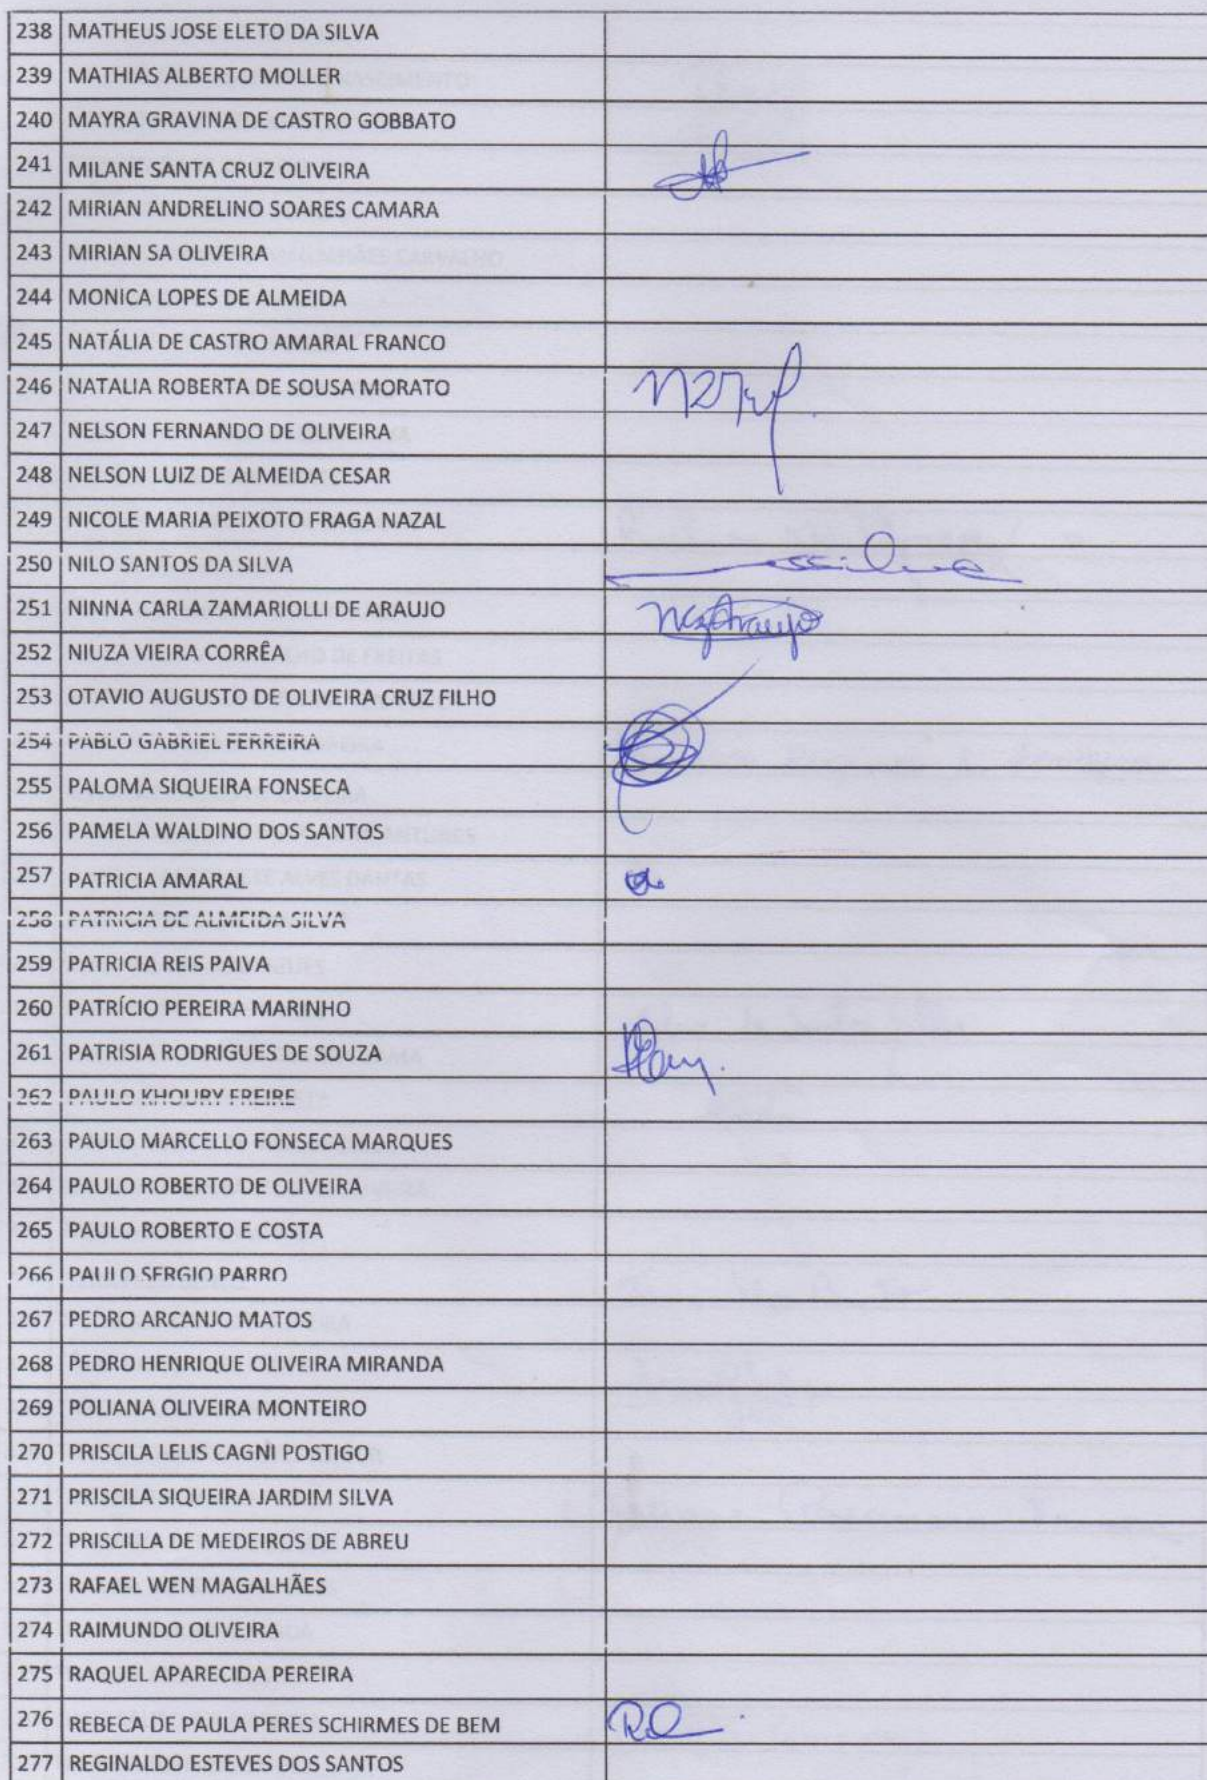 238 MATHEUS JOSE ELETO DA SILVA
239 MATHIAS ALBERTO MOLLER
240 MAYRA GRAVINA DE CASTRO GOBBATO
241 MILANE SANTA CRUZ OLIVEIRA
242 MIRIAN ANDRELINO SOARES CAMARA
243 MIRIAN SA OLIVEIRA
244 MONICA LOPES DE ALMEIDA
245 NATÁLIA DE CASTRO AMARAL FRANCO
246 NATALIA ROBERTA DE SOUSA MORATO
247 NELSON FERNANDO DE OLIVEIRA
248 NELSON LUIZ DE ALMEIDA CESAR
249 NICOLE MARIA PEIXOTO FRAGA NAZAL
250 NILO SANTOS DA SILVA
251 NINNA CARLA ZAMARIOLLI DE ARAUJO NCZAraujo
252 NIUZA VIEIRA CORRÊA
253 OTAVIO AUGUSTO DE OLIVEIRA CRUZ FILHO
254 PABLO GABRIEL FERREIRA
255 PALOMA SIQUEIRA FONSECA
256 PAMELA WALDINO DOS SANTOS
257 PATRICIA AMARAL
258 PATRICIA DE ALMEIDA SILVA
259 PATRICIA REIS PAIVA
260 PATRÍCIO PEREIRA MARINHO
261 PATRISIA RODRIGUES DE SOUZA
262 PAULO KHOURY FREIRE
263 PAULO MARCELLO FONSECA MARQUES
264 PAULO ROBERTO DE OLIVEIRA
265 PAULO ROBERTO E COSTA
266 PAULO SERGIO PARRO
267 PEDRO ARCANJO MATOS
268 PEDRO HENRIQUE OLIVEIRA MIRANDA
269 POLIANA OLIVEIRA MONTEIRO
270 PRISCILA LELIS CAGNI POSTIGO
271 PRISCILA SIQUEIRA JARDIM SILVA
272 PRISCILLA DE MEDEIROS DE ABREU
273 RAFAEL WEN MAGALHÃES
274 RAIMUNDO OLIVEIRA
275 RAQUEL APARECIDA PEREIRA
276 REBECA DE PAULA PERES SCHIRMES DE BEM
277 REGINALDO ESTEVES DOS SANTOS